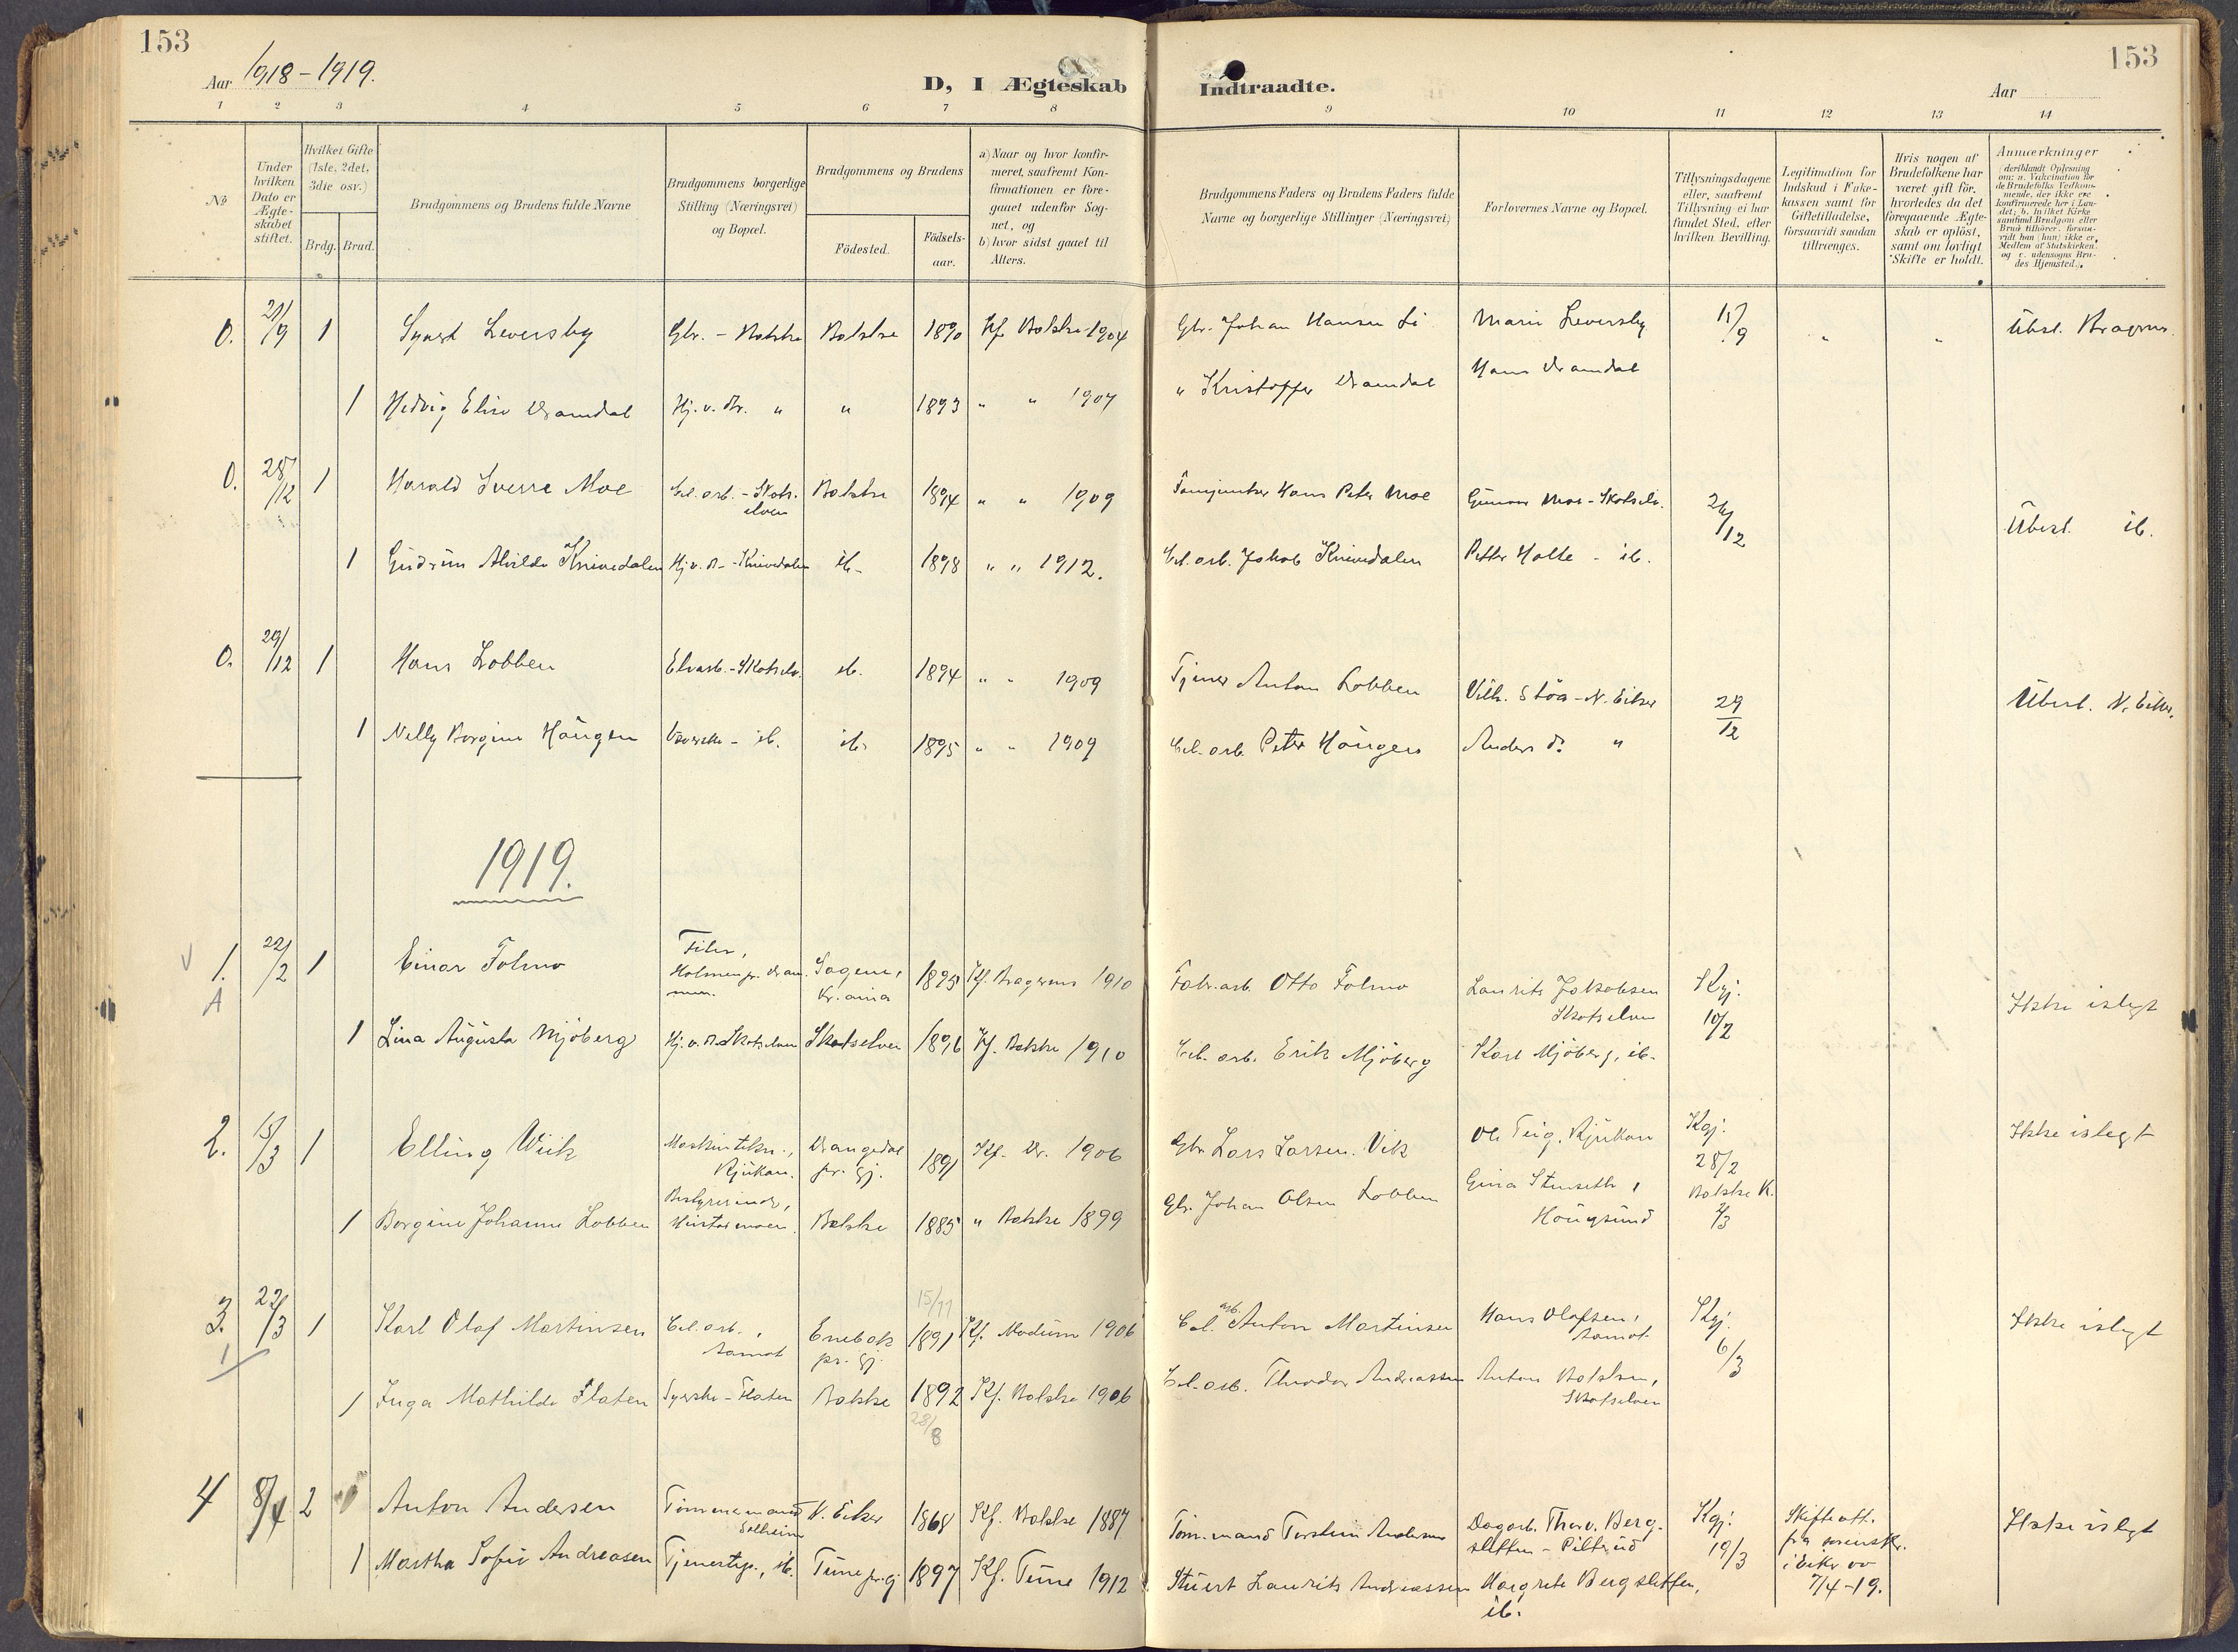 153
153
Aar 1918-1919.
D, I Ægteskab Indtraadte.
Aar
1 2 3 4 5 6 7 8 9 10 11 12 13 14
No
Under hvilken Dato er Ægteskabet stiftet.
Hvilket Gifte (1ste, 2det, 3die osv.)
Brdg. Brud.
Brudgommens og Brudens fulde Navne
Brudgommens borgerlige Stilling (Næringsvei) og Bopæl.
Brudgommens og Brudens
Födested.
Födsels-aar.
a) Naar og hvor konfirmeret, saafremt Konfirmationen er foregaaet udenfor Sognet, og
b) hvor sidst gaaet til Alters.
Brudgommens Faders og Brudens Faders fulde Navne og borgerlige Stillinger (Næringsvei)
Forlovernes Navne og Bopæl.
Tillysningsdagene eller, saafremt Tillysning ei har fundet Sted, efter hvilken Bevilling.
Legitimation for Indskud i Enkekassen samt for Giftetilladelse, forsaavidt saadan tiltrænges.
Hvis nogen af Brudefolkene har været gift før, hvorledes da det foregaaende Ægteskab er oplöst, samt om lovligt Skifte er holdt.
Anmærkninger (deriblandt Oplysning om: a. Vakcination for de Brudefolks Vedkommende, der ikke ere konfirmerede her i Landet; b. hvilket Kirkesamfund Brudgom eller Brud tilhörer, forsaavidt han (hun) ikke er Medlem af Statskirken, og c. udensogns Brudes Hjemsted.)
0. 21/9 1 Leversby Gbr. - Bakke Bakke 1890 Kf. Bakke 1904 Gbr. Johan Hansen Li Marie Leversby 15/9 " " Übest. Bragerns.
1 Hedvig Elise Dramdal Hj. v. Br. " " 1893 " " 1907 " Kristoffer Dramdal Hans Dramdal
0. 28/12 1 Harald Sverre Moe Cel. arb. - Skotselven Bakke 1894 " " 1909 Hans Peter Moe Gunnar Moe - Skotselv. 26/12 Übest. ib.
1 Gudrun Alvilde Knivedalen Hj. v. - Knivedalen ib. 1898 " " 1912. Cel. arb. Jakob Knivedalen Petter Holte - ib.
0. 29/12 1 Hans Lobben Elvarb. - Skotselv. ib. 1894 " " 1909 Tjener Anton Lobben Vilh. Stöa - N. Eiker 29/12 Übest. N. Eiker.
1 Nelly Borgine Haugen Væverske - ib. ib. 1895 " " 1909 Cel. arb. Peter Haugen Anders do "
1919.
1. A 22/2 1 Einar Folmo Filer, Holmen pr. Drammen. Sagene, Kr.ania 1895 Kf. Bragerns 1910 Fabr. arb. Otto Folmo Laurits Jakobsen Skotselven Kgj. 10/2 Ikke i slegt
1 Lina Augusta Mjöberg Hj. v. Skotselven Skotselven 1896 Kf. Bakke 1910 Cel. arb. Erik Mjöberg Karl Mjöberg, ib.
2. 15/3 1 Elling Wiik Maskintekn., Rjukan. Drangedal pr. gj. 1891 Kf. Dr. 1906 Gbr. Lars Larsen Vik Ole Teig, Rjukan Kgj. 28/2 Ikke i slegt
1 Borgine Johanne Lobben Bestyrerinde, Bakke 1885 " Bakke 1899 Gbr. Johan Olsen Lobben Gina Stenseth, Hougsund Bakke K. 2/3
3. 22/3 1 Karl Olaf Martinsen Cel. arb., Aamot Enebak pr. gj. 15/11 1891 Kf. Modum 1906 Cel. arb. Anton Martinsen Hans Olafsen, Aamot Kgj. 6/3 Ikke i slegt
1 Inga Mathilde Flaten Syerske - Flaten Bakke 1892 28/8 Kf. Bakke 1906 Cel. arb. Theodor Andreassen Anton Skotselven
4 8/4 2 Anton Andersen Tömmermand Solheim N. Eiker 1868 Kf. Bakke 1887 Töm.mand Torstein Andersen Dagarb. Thorv. Bergsletten - Piltrud Kgj. 19/3 Skifteatt. fra sorenskr. i Eiker av 7/4-19. Ikke i slegt
1 Martha Sofie Andreasen Tjenestep., ib. Tune pr. gj 1897 Kf. Tune 1912 Stuert Laurits Andreassen Margrete Bergsletten, ib.